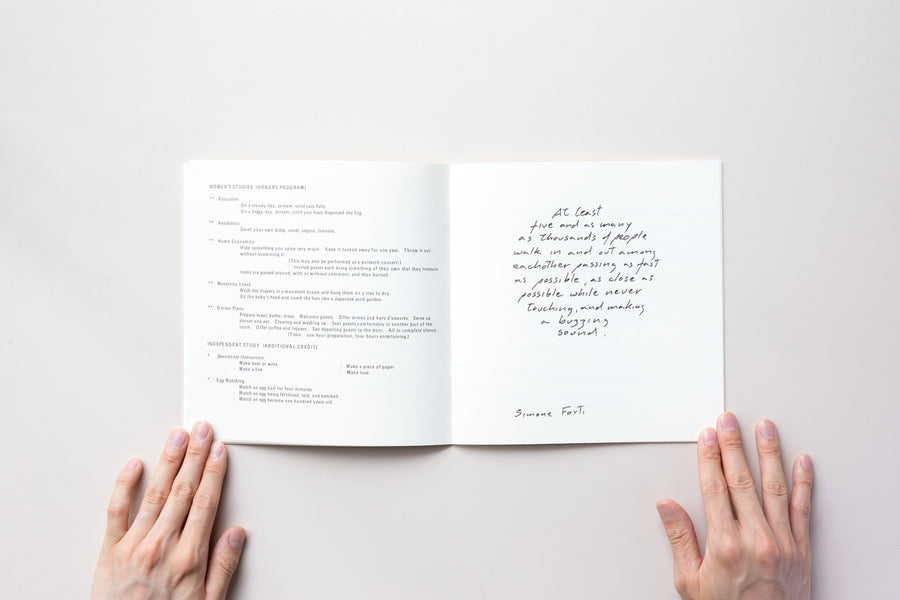 WOMEN'S STUDIES (HONORS PROGRAM)
** Elocution
- On a cloudy day, scream, until rain falls.
- On a foggy day, scream, until you have dispersed the fog.
** Aesthetics
Smell your own scalp, navel, vagina, toenails.
** Home Economics
Hide something you value very much. Keep it tucked away for one year. Throw it out
without examining it.
(This may also be performed as a potlatch concert:)
Invited guests each bring something of their own that they treasure.
Items are passed around, with or without comment, and then burned.
** Maternity Leave
- Wash the diapers in a mountain brook and hang them on a tree to dry.
- Oil the baby's head and comb the hair like a Japanese sand garden.
** Dinner Piece
Prepare meal; bathe; dress. Welcome guests. Offer drinks and hors d'oeuvres. Serve up
dinner and eat. Clearing and washing up. Seat guests comfortably in another part of the
room. Offer coffee and liqueur. See departing guests to the door. All in complete silence.
(Time: one hour preparation, four hours entertaining.)
INDEPENDENT STUDY (ADDITIONAL CREDIT)
* Devotional Instruction
- Make beer or wine - Make a piece of paper
- Make a fire - Make love.
* Egg Watching
- Watch an egg boil for four minutes.
- Watch an egg being fertilized, laid, and hatched.
- Watch an egg become one hundred years old.
At least
five and as many
as thousands of people
walk in and out among
eachother passing as fast
as possible, as close as
possible while never
touching, and making
a buzzing
sound.
Simone Forti